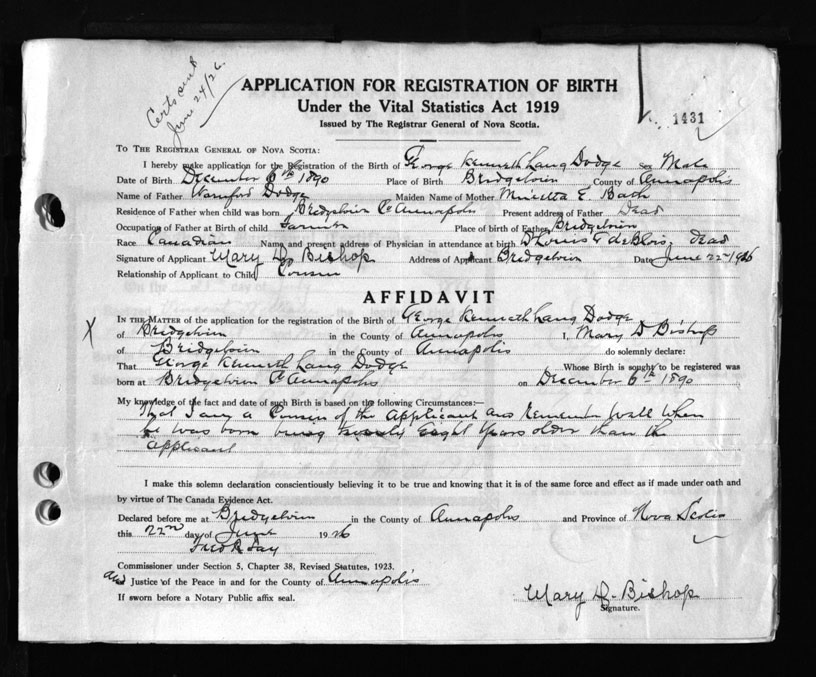 Certs sent
June 24/26.
APPLICATION FOR REGISTRATION OF BIRTH
Under the Vital Statistics Act 1919
Issued by The Registrar General of Nova Scotia.
1431
TO THE REGISTRAR GENERAL OF NOVA SCOTIA:
I hereby make application for the Registration of the Birth of George Kenneth Lang Dodge Sex Male
Date of Birth December 6th 1890 Place of Birth Bridgetown County of Annapolis
Name of Father Dodge Maiden Name of Mother E.
Residence of Father when child was born Bridgetown Co Annapolis Present address of Father Dead
Occupation of Father at Birth of child Farmer Place of birth of Father Bridgetown
Race Canadian Name and present address of Physician in attendance at birth deBlois, dead
Signature of Applicant Mary D. Bishop Address of Applicant Bridgetown Date June 22nd 1926
Relationship of Applicant to Child Cousin
AFFIDAVIT
X
IN THE MATTER of the application for the registration of the Birth of George Kenneth Lang Dodge
of Bridgetown in the County of Annapolis I, Mary D Bishop
of Bridgetown in the County of Annapolis do solemnly declare:
That George Kenneth Lang Dodge Whose Birth is sought to be registered was
born at Bridgetown Co Annapolis on December 6th 1890
My knowledge of the fact and date of such Birth is based on the following Circumstances:—
That I am a Cousin of the Applicant and Remember well when
he was born being Eight Years older than the
applicant
I make this solemn declaration conscientiously believing it to be true and knowing that it is of the same force and effect as if made under oath and
by virtue of The Canada Evidence Act.
Declared before me at Bridgetown in the County of Annapolis and Province of Nova Scotia
this 22nd day of June 1926
Fred R Fay
Commissioner under Section 5, Chapter 38, Revised Statutes, 1923.
and Justice of the Peace in and for the County of Annapolis
If sworn before a Notary Public affix seal.
Mary D. Bishop
Signature.